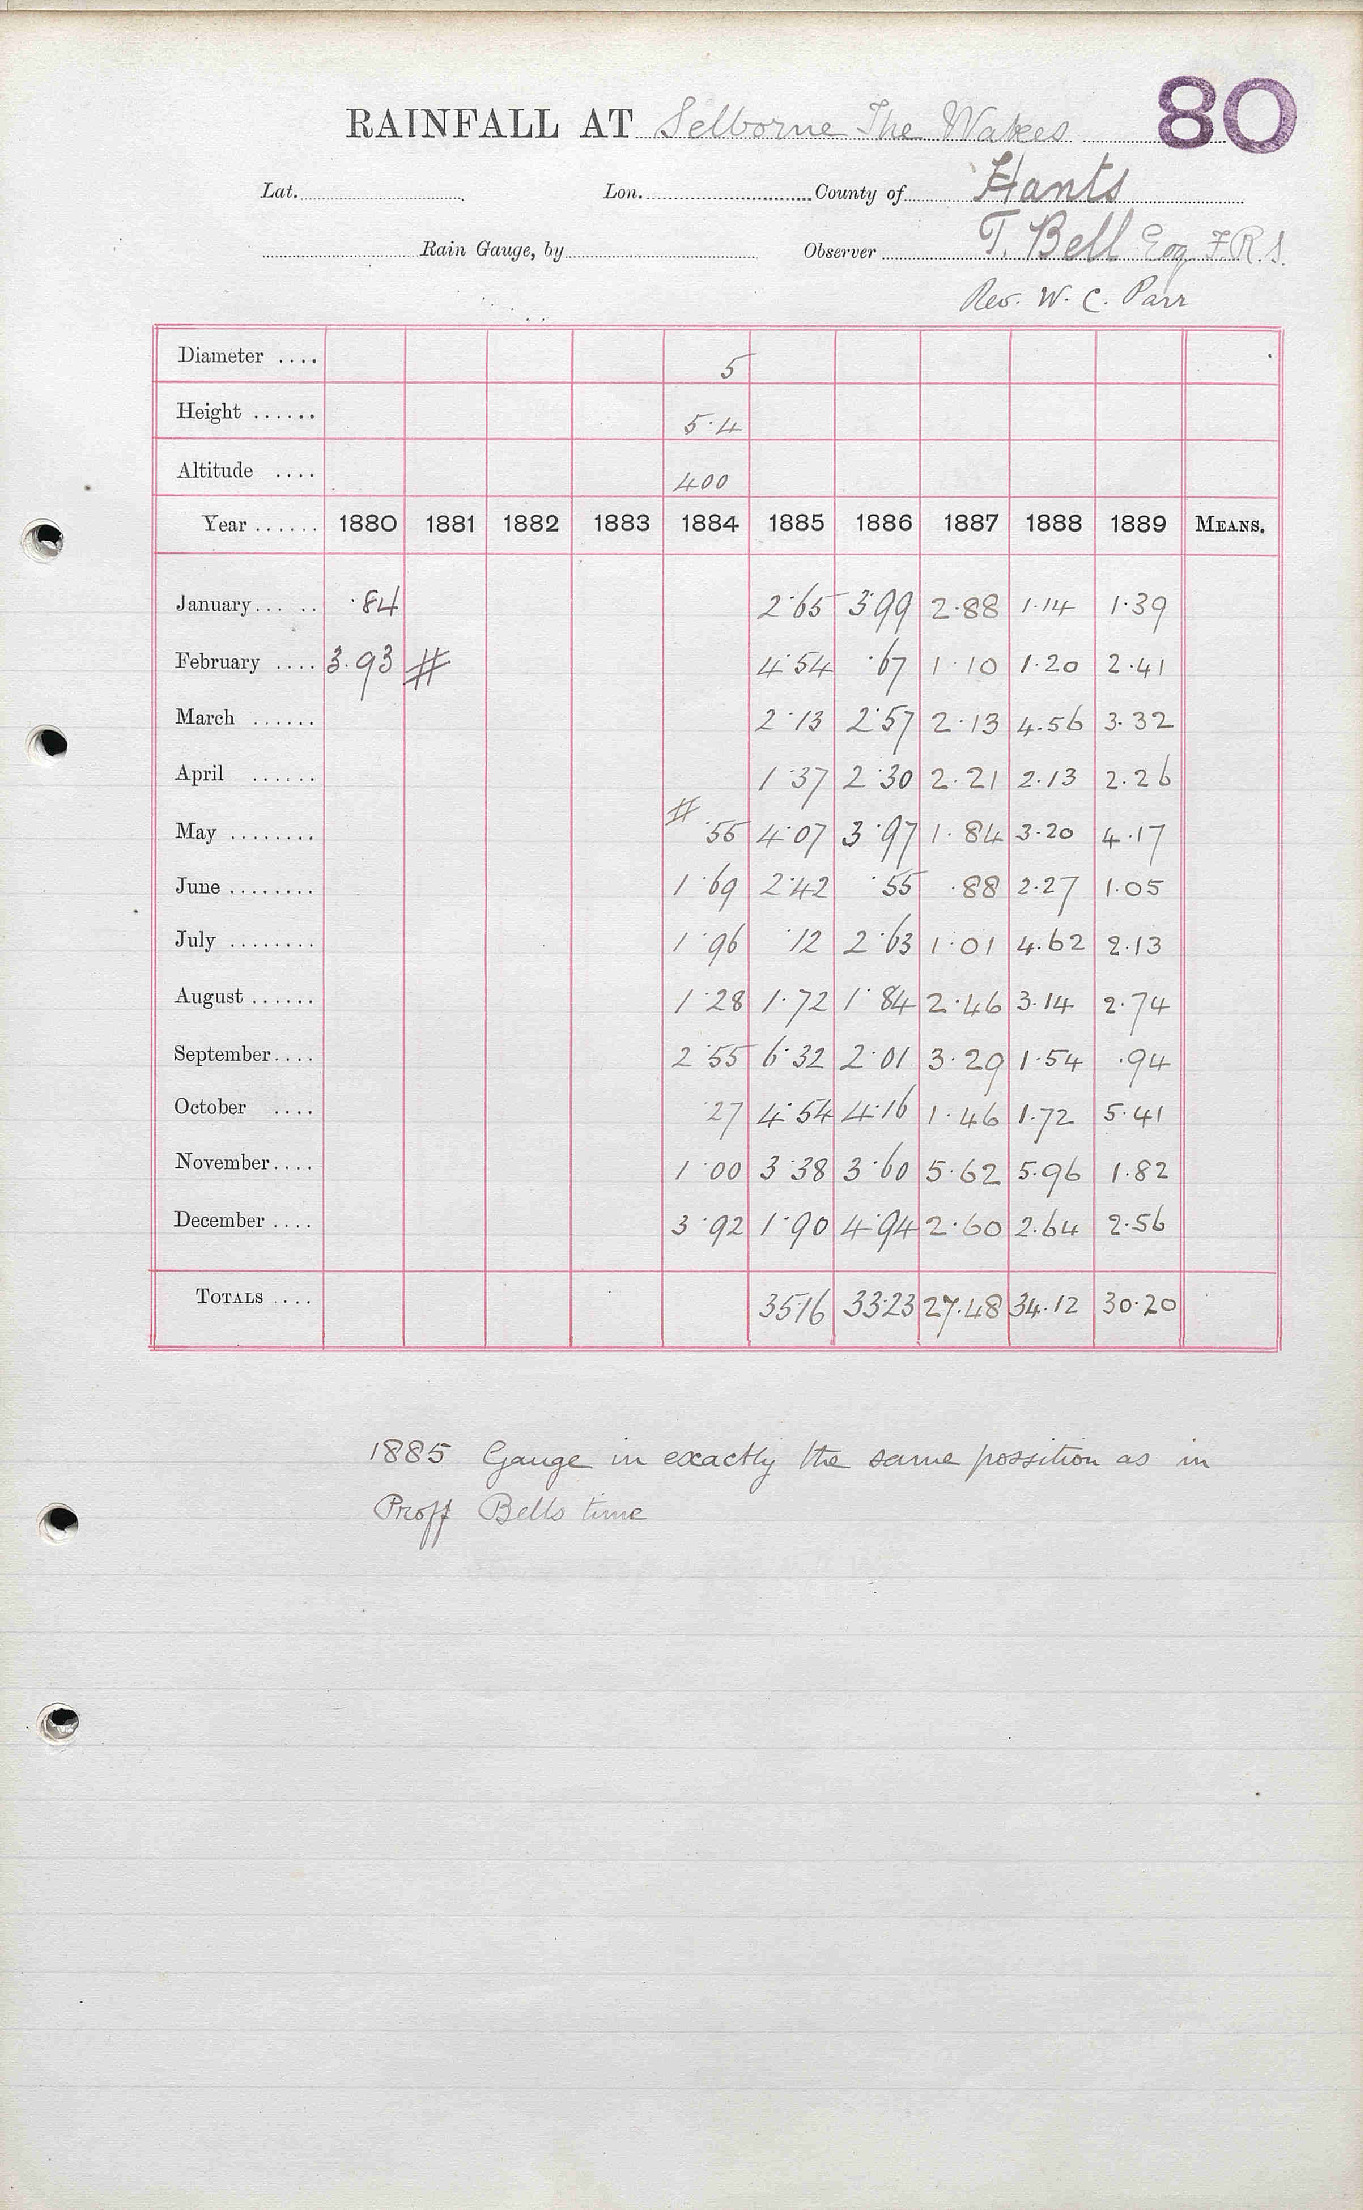 80
RAINFALL AT Selborne The Wakes
Lat. Lon. County of Hants
Rain Gauge, by Observer T. Bell Esq F.R.S.
Rev. W. C. Parr
Diameter .... 5
Height ...... 5.4
Altitude .... 400
Year ...... 1880 1881 1882 1883 1884 1885 1886 1887 1888 1889 MEANS.
January... .. .84 2.65 3.99 2.88 1.14 1.39
February .... 3.93 # 4.54 .67 1.10 1.20 2.41
March ...... 2.13 2.57 2.13 4.56 3.32
April ...... 1.37 2.30 2.21 2.13 2.26
May ........ # .55 4.07 3.97 1.84 3.20 4.17
June ........ 1.69 2.42 .55 .88 2.27 1.05
July ........ 1.96 .12 2.63 1.01 4.62 2.13
August ...... 1.28 1.72 1.84 2.46 3.14 2.74
September.... 2.55 6.32 2.01 3.29 1.54 .94
October .... .27 4.54 4.16 1.46 1.72 5.41
November.... 1.00 3.38 3.60 5.62 5.96 1.82
December .... 3.92 1.90 4.94 2.60 2.64 2.56
TOTALS .... 35.16 33.23 27.48 34.12 30.20
1885 Gauge in exactly the same possition as in
Proff Bells time